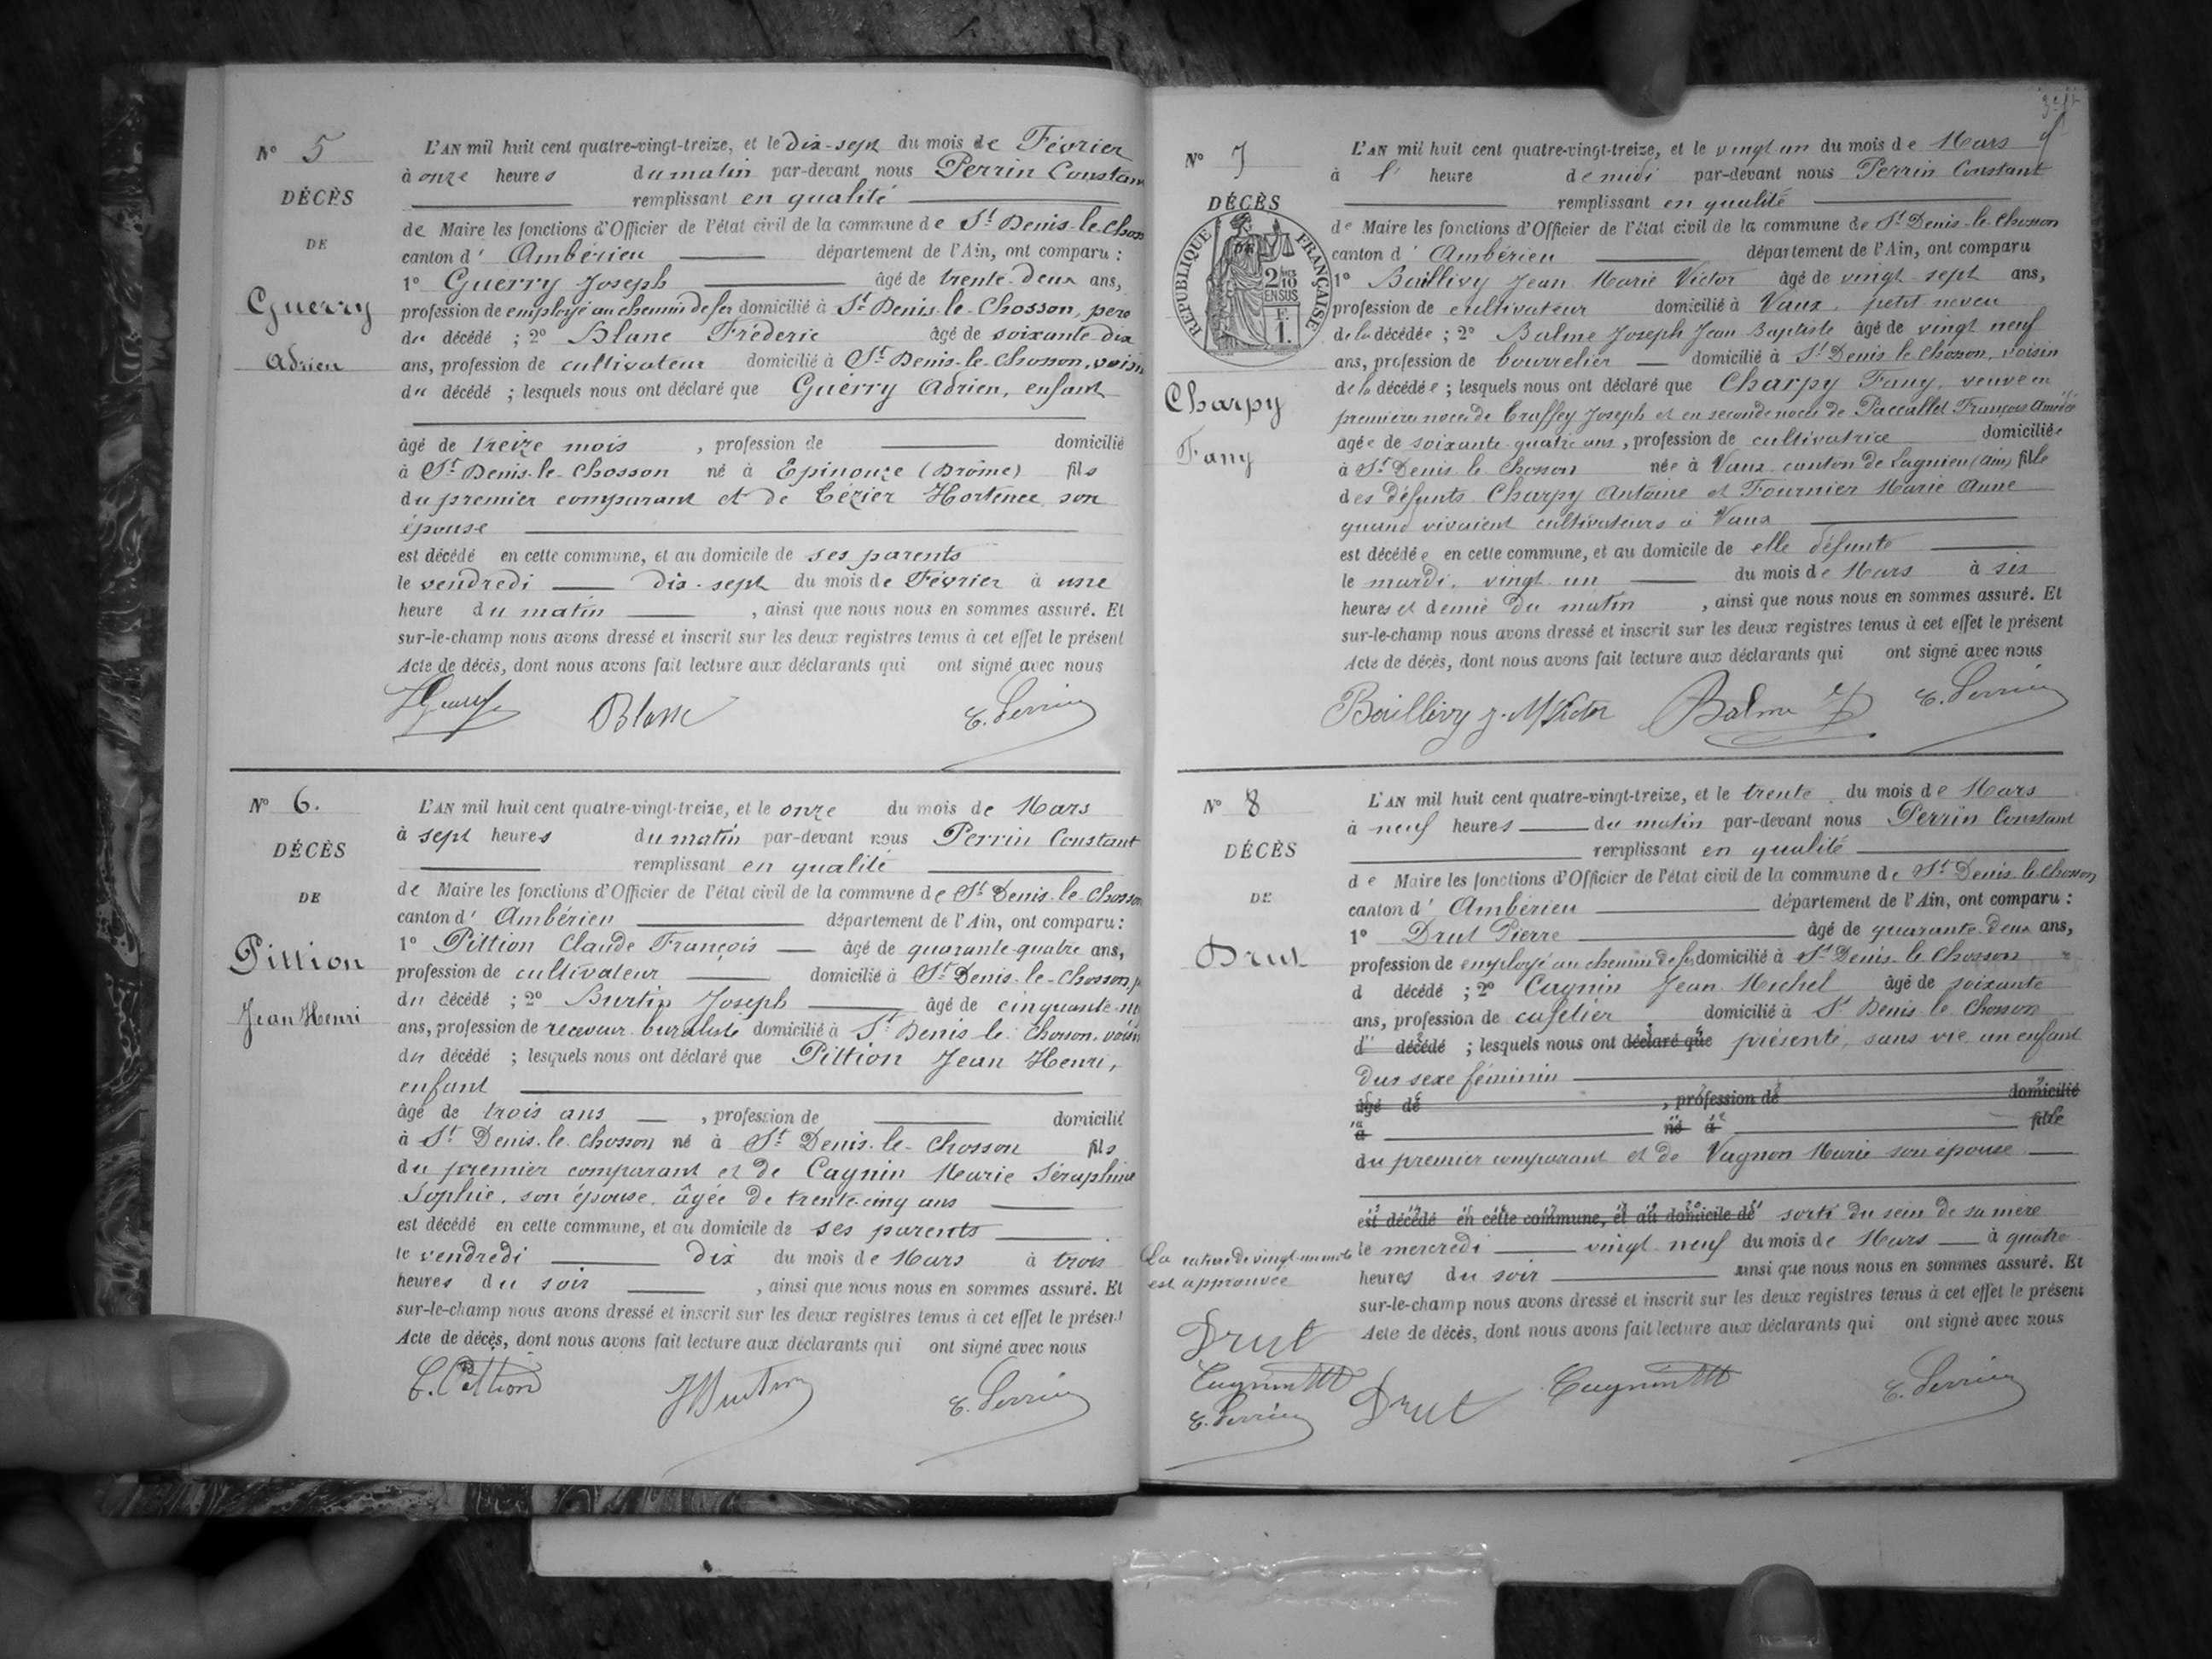 N° 5
DÉCÈS
DE
Guerry
Adrien
L'AN mil huit cent quatre-vingt-treize, et le dix-sept du mois de Février
à onze heures du matin par-devant nous Perrin Constant
remplissant en qualité
de Maire les fonctions d'Officier de l'état civil de la commune de St Denis-le-Chosson
canton d' Ambérieu département de l'Ain, ont comparu :
1° Guerry Joseph âgé de trente-deux ans,
profession de employé au chemin de fer domicilié à St Denis-le-Chosson, père
du décédé ; 2° Blanc Fréderic âgé de soixante-dix
ans, profession de cultivateur domicilié à St Denis-le-Chosson, voisin
du décédé ; lesquels nous ont déclaré que Guerry Adrien, enfant
âgé de treize mois , profession de domicilié
à St Denis-le-Chosson né à Epinouze (Drôme) fils
du premier comparant et de Tézier Hortence son
épouse
est décédé en cette commune, et au domicile de ses parents
le vendredi dix-sept du mois de Février à une
heure du matin , ainsi que nous nous en sommes assuré. Et
sur-le-champ nous avons dressé et inscrit sur les deux registres tenus à cet effet le présent
Acte de décès, dont nous avons fait lecture aux déclarants qui ont signé avec nous
Blanc C. Perrin
N° 6.
DÉCÈS
DE
Pittion
Jean Henri
L'AN mil huit cent quatre-vingt-treize, et le onze du mois de Mars
à sept heures du matin par-devant nous Perrin Constant
remplissant en qualité
de Maire les fonctions d'Officier de l'état civil de la commune de St Denis-le-Chosson
canton d' Ambérieu département de l'Ain, ont comparu:
1° Pittion Claude François âgé de quarante-quatre ans,
profession de cultivateur domicilié à St Denis-le-Chosson,
du décédé ; 2° Burtin Joseph âgé de cinquante
ans, profession de receveur buraliste domicilié à St Denis le Chosson, voisin
du décédé ; lesquels nous ont déclaré que Pittion Jean Henri,
enfant
âgé de trois ans , profession de domicilié
à St Denis-le-Chosson né à St Denis-le-Chosson fils
du premier comparant et de Cagnin Marie Séraphine
Sophie, son épouse, âgée de trente-cinq ans
est décédé en cette commune, et au domicile de ses parents
le vendredi dix du mois de Mars à trois
heures du soir , ainsi que nous nous en sommes assuré. Et
sur-le-champ nous avons dressé et inscrit sur les deux registres tenus à cet effet le présent
Acte de décès, dont nous avons fait lecture aux déclarants qui ont signé avec nous
C. Pittion J Burtin C. Perrin
N° 7
DÉCÈS
RÉPUBLIQUE FRANÇAISE
2/10 EN SUS
F.
1.
Charpy
Fany
L'AN mil huit cent quatre-vingt-treize, et le vingt un du mois de Mars
à l' heure de midi par-devant nous Perrin Constant
remplissant en qualité
de Maire les fonctions d'Officier de l'état civil de la commune de St Denis-le-Chosson
canton d' Ambérieu département de l'Ain, ont comparu
1° Baillivy Jean Marie Victor âgé de vingt sept ans,
profession de cultivateur domicilié à Vaux, petit neveu
de la décédée ; 2° Balme Joseph Jean Baptiste âgé de vingt neuf
ans, profession de bourrelier domicilié à St Denis le Chosson, voisin
de la décédée ; lesquels nous ont déclaré que Charpy Fany, veuve en
première noce de Traffey Joseph et en seconde noce de Paccallet François Amédée
âgée de soixante quatre ans, profession de cultivatrice domiciliée
à St Denis le Chosson née à Vaux canton de Lagnieu (Ain) fille
des défunts Charpy Antoine et Fournier Marie Anne
quand vivaient cultivateurs à Vaux
est décédée en cette commune, et au domicile de elle défunte
le mardi, vingt un du mois de Mars à six
heures et demie du matin , ainsi que nous nous en sommes assuré. Et
sur-le-champ nous avons dressé et inscrit sur les deux registres tenus à cet effet le présent
Acte de décès, dont nous avons fait lecture aux déclarants qui ont signé avec nous
Baillivy J. M Victor Balme C. Perrin
N° 8
DÉCÈS
DE
Drut
L'AN mil huit cent quatre-vingt-treize, et le trente du mois de Mars
à neuf heures du matin par-devant nous Perrin Constant
remplissant en qualité
de Maire les fonctions d'Officier de l'état civil de la commune de St Denis-le-Chosson
canton d' Ambérieu département de l'Ain, ont comparu :
1° Drut Pierre âgé de quarante-deux ans,
profession de employé au chemin de fer domicilié à St Denis-le-Chosson
d décédé ; 2° Cagnin Jean Michel âgé de soixante
ans, profession de cafetier domicilié à St Denis le Chosson
d décédé ; lesquels nous ont déclaré que présenté, sans vie un enfant
du sexe féminin
âgé de , profession de domicilié
à né à fille
du premier comparant et de Vagnon Marie son épouse
est décédé en cette commune, et au domicile de sorti du sein de sa mère
le mercredi vingt-neuf du mois de Mars à quatre
heures du soir ainsi que nous nous en sommes assuré. Et
sur-le-champ nous avons dressé et inscrit sur les deux registres tenus à cet effet le présent
Acte de décès, dont nous avons fait lecture aux déclarants qui ont signé avec nous
La rature de vingt-un mots
est approuvée
Drut
Cagnin
C. Perrin
Drut Cagnin C. Perrin